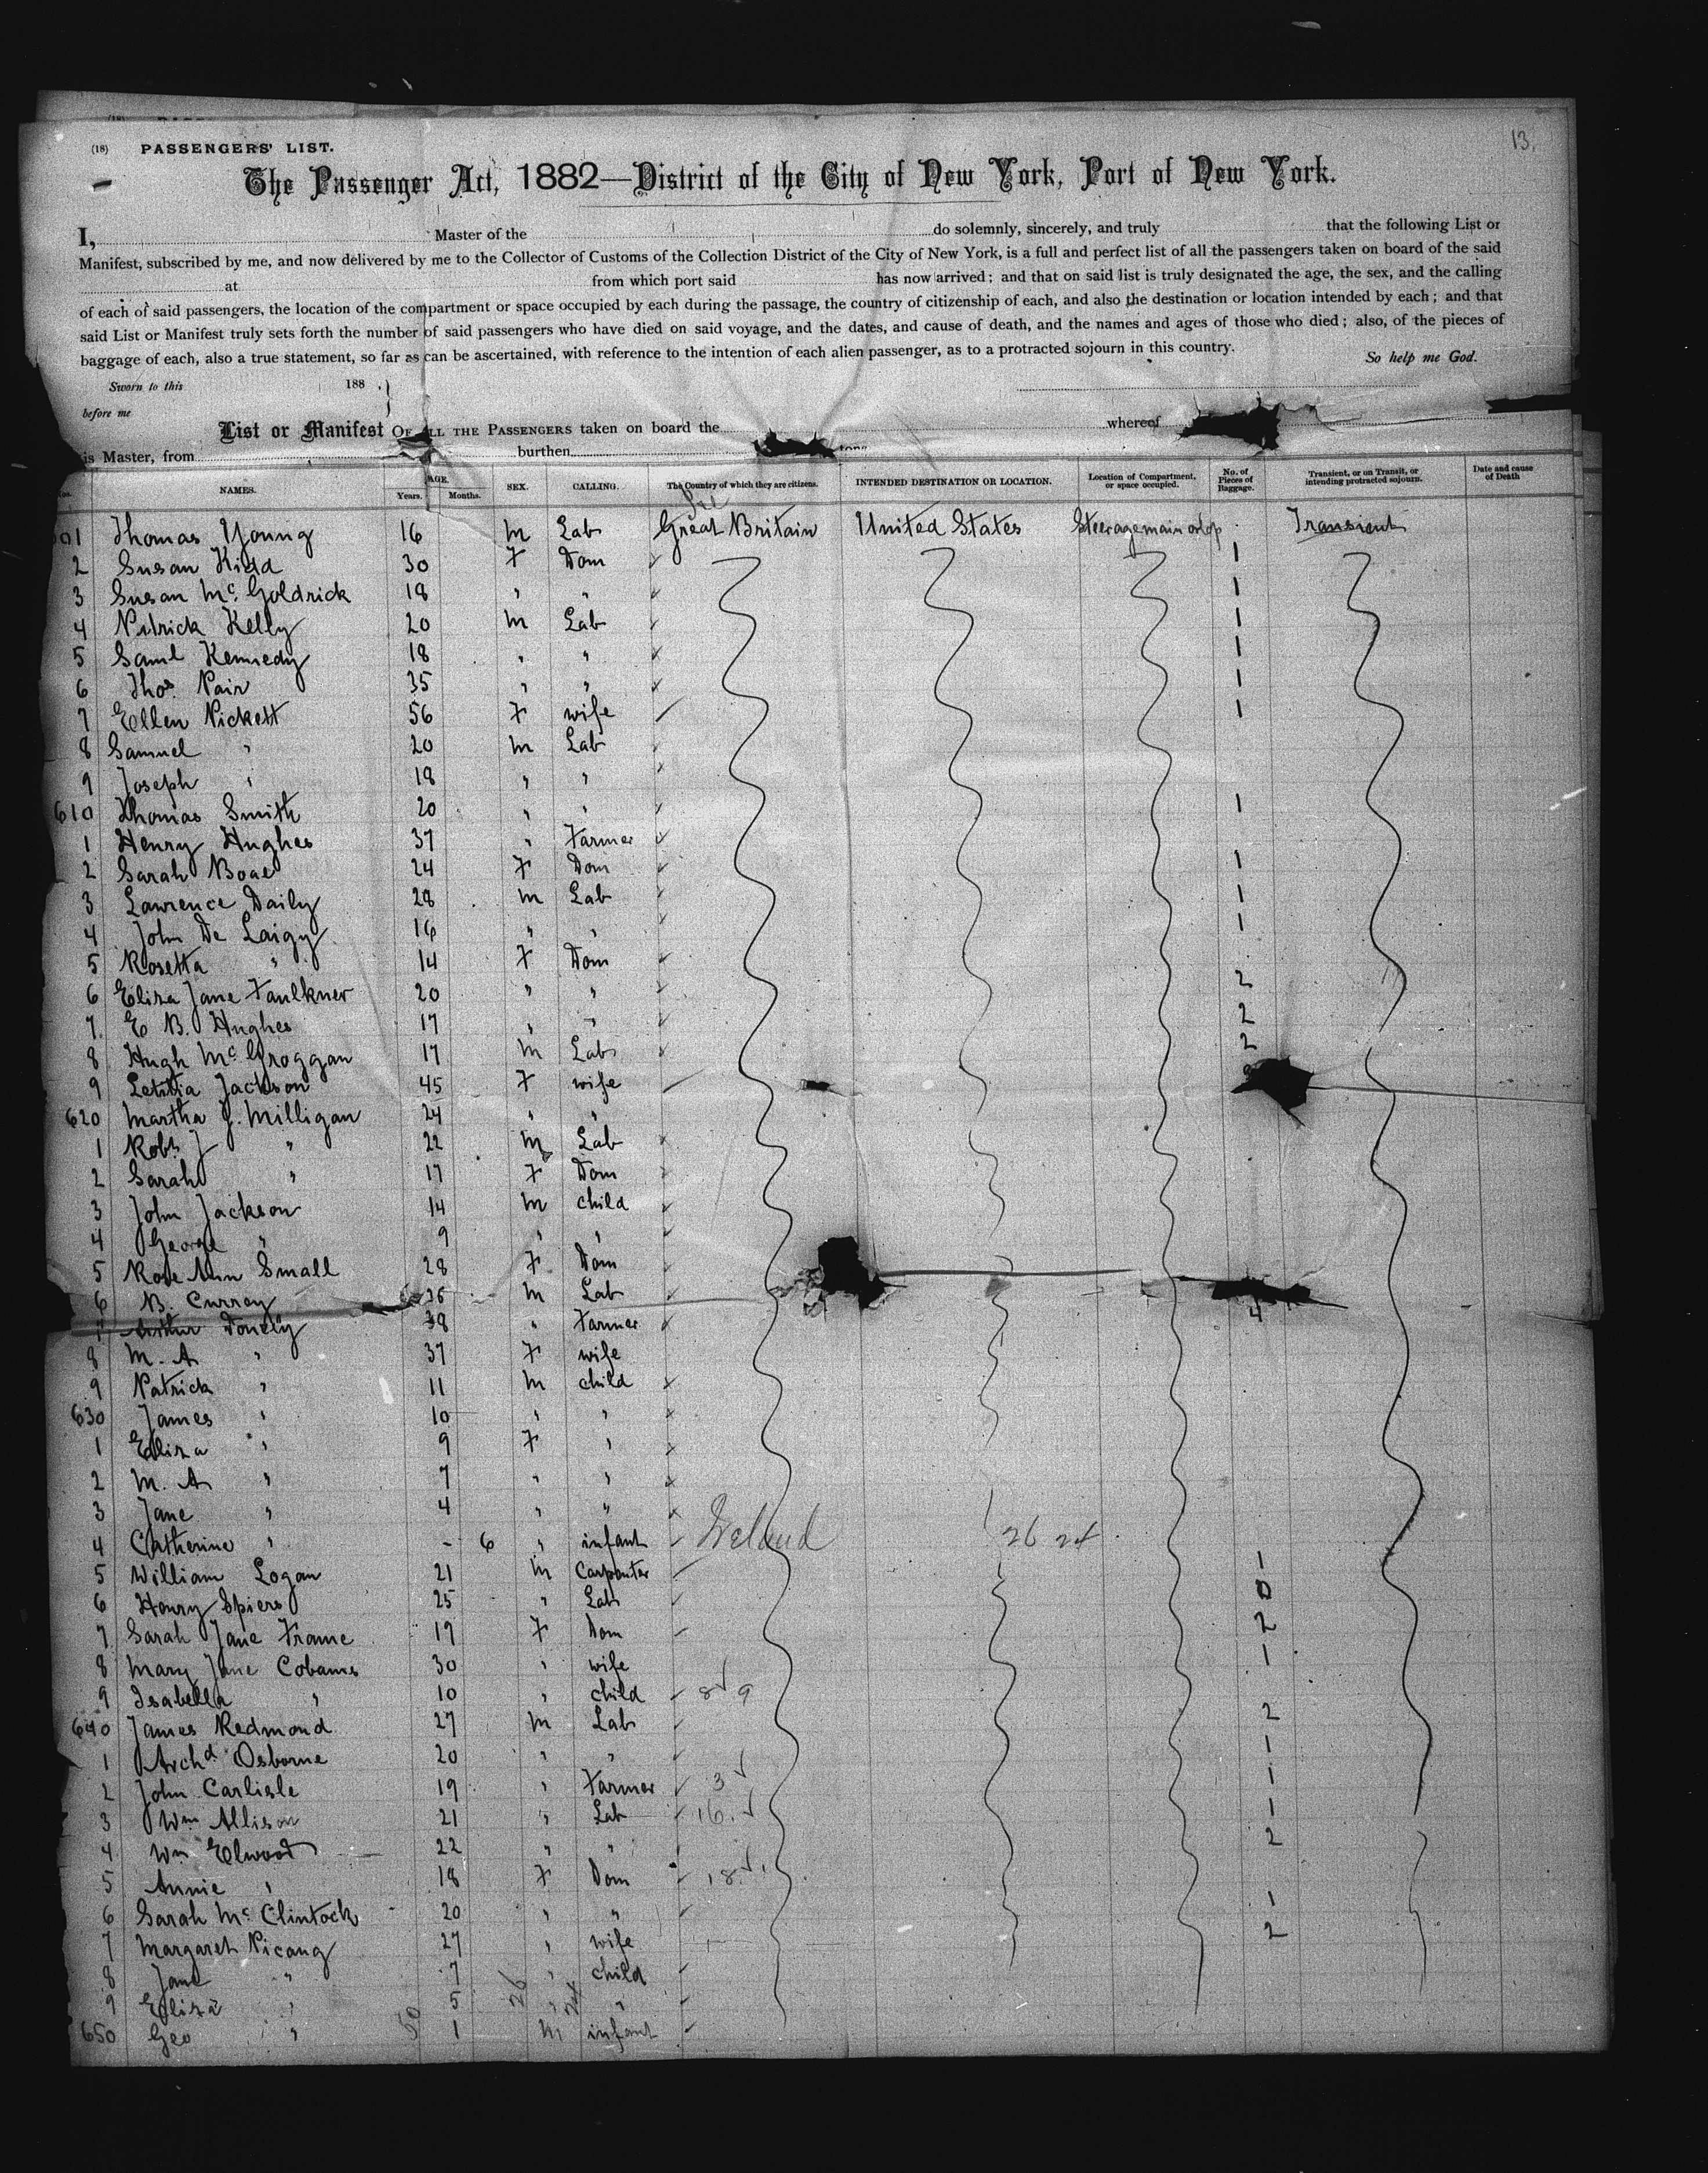 13.
(18) PASSENGERS' LIST.
The Passenger Act, 1882—District of the City of New York, Port of New York.
I, Master of the do solemnly, sincerely, and truly that the following List or
Manifest, subscribed by me, and now delivered by me to the Collector of Customs of the Collection District of the City of New York, is a full and perfect list of all the passengers taken on board of the said
at from which port said has now arrived; and that on said list is truly designated the age, the sex, and the calling
of each of said passengers, the location of the compartment or space occupied by each during the passage, the country of citizenship of each, and also the destination or location intended by each; and that
said List or Manifest truly sets forth the number of said passengers who have died on said voyage, and the dates, and cause of death, and the names and ages of those who died; also, of the pieces of
baggage of each, also a true statement, so far as can be ascertained, with reference to the intention of each alien passenger, as to a protracted sojourn in this country. So help me God.
Sworn to this 188
before me
List or Manifest OF ALL THE PASSENGERS taken on board the whereof
is Master, from burthen tons
NAMES. AGE. Years. Months. SEX. CALLING. The Country of which they are citizens. INTENDED DESTINATION OR LOCATION. Location of Compartment, or space occupied. No. of Pieces of Baggage. Transient, or on Transit, or intending protracted sojourn. Date and cause of Death
601 Thomas Young 16 m Lab Great Britain United States Steerage main orlop Transient
2 Susan Kidd 30 F Dom 1
3 Susan McGoldrick 18 " " 1
4 Patrick Kelly 20 m Lab 1
5 Saml Kennedy 18 " " 1
6 Thos. Pair 35 " " 1
7 Ellen Pickett 56 F wife 1
8 Samuel " 20 m Lab
9 Joseph " 18 " "
610 Thomas Smith 20 " " 1
1 Henry Hughes 37 " Farmer
2 Sarah Boae 24 F Dom 1
3 Lawrence Daily 28 m Lab 1
4 John De Laigy 16 " " 1
5 Rosetta " 14 F Dom
6 Eliza Jane Faulkner 20 " " 2
7 E B. Hughes 17 " " 2
8 Hugh McGroggan 17 m Lab 2
9 Letitia Jackson 45 F wife
620 Martha J. Milligan 24 " "
1 Robt J " 22 m Lab
2 Sarah " 17 F Dom
3 John Jackson 14 m child
4 George " 9 " "
5 Rose Ann Small 28 F Dom
6 B. Curray 36 m Lab
7 Arthur Donelly 38 " Farmer 4
8 M. A " 37 F wife
9 Patrick " 11 m child
630 James " 10 " "
1 Eliza " 9 F "
2 M. A " 7 " "
3 Jane " 4 " "
4 Catherine " - 6 " infant Ireland 26 24
5 William Logan 21 m Carpenter 1
6 Henry Spiers 25 " Lab 0
7 Sarah Jane Frame 17 F Dom 2
8 Mary Jane Cobams 30 " wife 1
9 Isabella " 10 " child 8 9
640 James Redmond 27 m Lab 2
1 Archd Osborne 20 " " 1
2 John Carlisle 19 " Farmer 3 1
3 Wm Allison 21 " Lab 16. 1
4 Wm Elwood 22 " " 2
5 Annie " 18 F Dom 18
6 Sarah McClintock 20 " " 1
7 Margaret Picang 27 " wife 2
8 Jane " 7 " child
9 Eliza " 5 26 " 24 "
650 Geo " 50 1 m infant